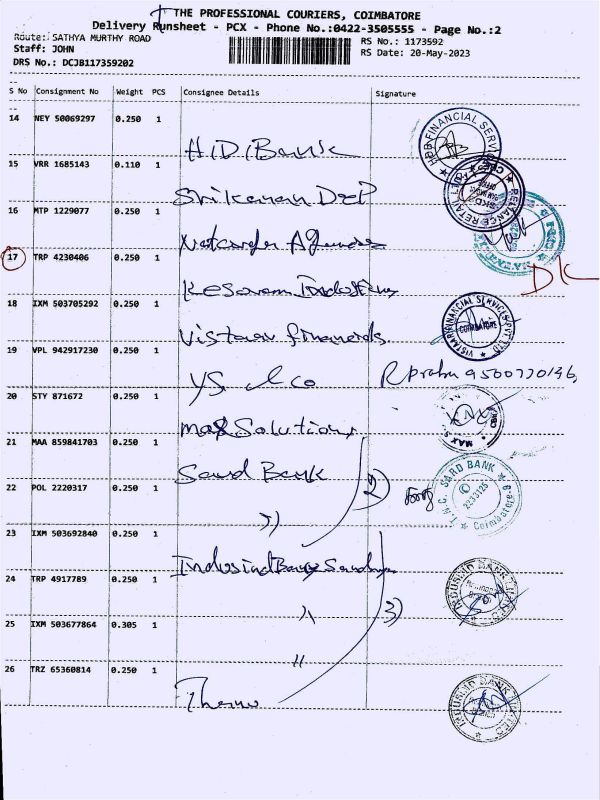 THE PROFESSIONAL COURIERS, COIMBATORE
Delivery Runsheet - PCX - Phone No.:0422-3505555 - Page No.:2
Route: SATHYA MURTHY ROAD
RS No.: 1173592
Staff: JOHN
RS Date: 20-May-2023
DRS No.: DCJB117359202
S No Consignment No Weight PCS Consignee Details Signature
14 NEY 50069297 0.250 1
HDB FINANCIAL SERVICES
15 VRR 1685143 0.110 1
RELIANCE RETAIL
16 MTP 1229077 0.250 1
17 TRP 4230406 0.250 1
DK
Kesoram Industries
18 IXM 503705292 0.250 1
VISTAAR FINANCIAL SERVICES PVT LTD
COIMBATORE
19 VPL 942917230 0.250 1
YS & Co
R prabu 9500770196
20 STY 871672 0.250 1
Max Solutions
MAX S
21 MAA 859841703 0.250 1
Sard Bank
22 POL 2220317 0.250 1
2)
T.N.C. SARD BANK
Coimbatore
23 IXM 503692840 0.250 1
Indusind Bank
24 TRP 4917789 0.250 1
3)
INDUSIND BANK
25 IXM 503677864 0.305 1
"
26 TRZ 65360814 0.250 1
INDUSIND BANK